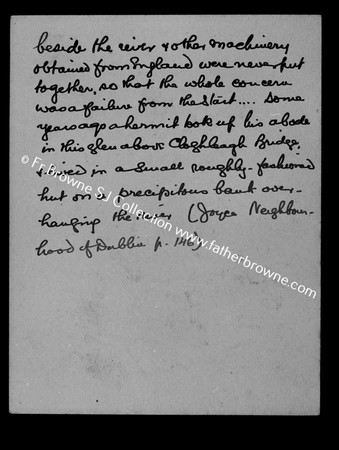 beside the river & other machinery
obtained from England were never put
together, so that the whole concern
was a failure from the start.... Some
years ago a hermit took up his abode
in this glen above Cloghleagh Bridge,
& lived in a small roughly-fashioned
hut on a precipitous bank over-
hanging the river (Joyce Neighbour-
hood of Dublin p. 146)
© Fr Browne SJ Collection www.fatherbrowne.com